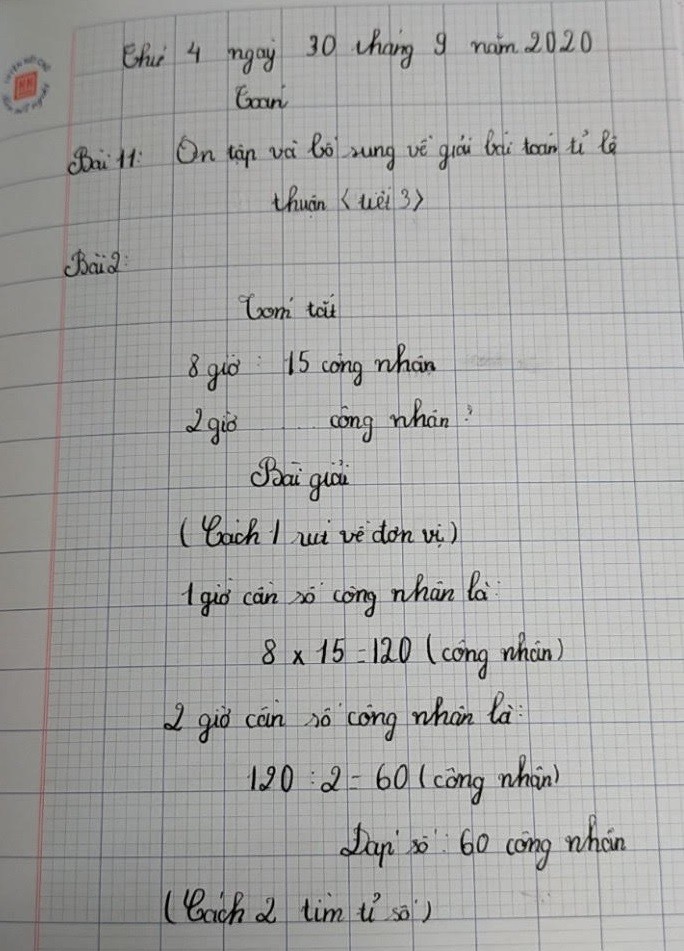 Thứ 4 ngày 30 tháng 9 năm 2020
Toán
Bài 11: Ôn tập và bổ sung về giải bài toán tỉ lệ
thuận < tiết 3 >
Bài 2:
Tóm tắt
8 giờ : 15 công nhân
2 giờ ..... công nhân ?
Bài giải
( Cách 1 rút về đơn vị )
1 giờ cần số công nhân là:
8 x 15 = 120 ( công nhân )
2 giờ cần số công nhân là:
120 : 2 = 60 ( công nhân )
Đáp số : 60 công nhân
( Cách 2 tìm tỉ số )